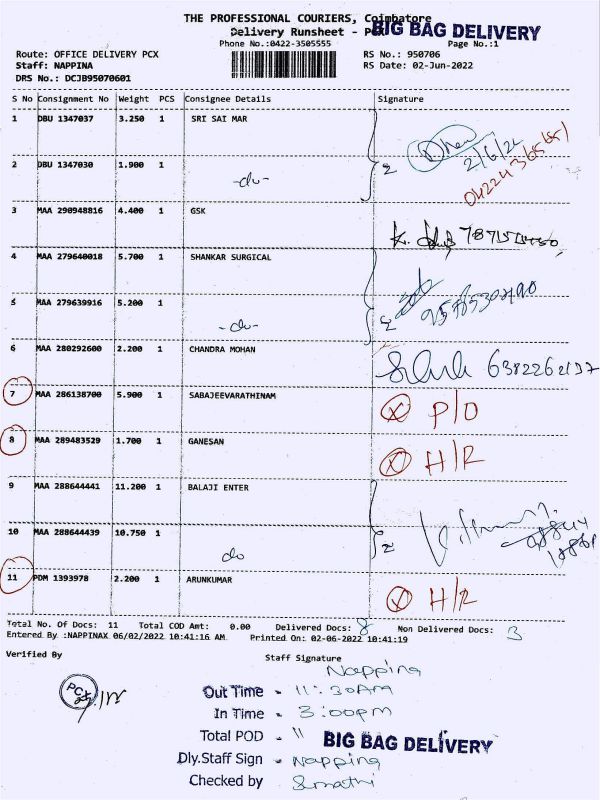 THE PROFESSIONAL COURIERS, Coimbatore
BIG BAG DELIVERY
Delivery Runsheet - PCX
Phone No.:0422-3505555 Page No.:1
Route: OFFICE DELIVERY PCX RS No.: 950706
Staff: NAPPINA RS Date: 02-Jun-2022
DRS No.: DCJB95070601
S No Consignment No Weight PCS Consignee Details Signature
1 DBU 1347037 3.250 1 SRI SAI MAR
2/6/22
2 DBU 1347030 1.900 1 -do- 2
3 MAA 290948816 4.400 1 GSK
4 MAA 279640018 5.700 1 SHANKAR SURGICAL
5 MAA 279639916 5.200 1 -do- 2
6 MAA 280292600 2.200 1 CHANDRA MOHAN 6382262137
7 MAA 286138700 5.900 1 SABAJEEVARATHINAM X P/O
8 MAA 289483529 1.700 1 GANESAN X H/R
9 MAA 288644441 11.200 1 BALAJI ENTER
10 MAA 288644439 10.750 1 do 2
11 PDM 1393978 2.200 1 ARUNKUMAR X H/R
Total No. Of Docs: 11 Total COD Amt: 0.00 Delivered Docs: 8 Non Delivered Docs: 3
Entered By :NAPPINAX 06/02/2022 10:41:16 AM Printed On: 02-06-2022 10:41:19
Verified By Staff Signature
Nappina
PCX
Out Time - 11:30Am
In Time - 3:00pm
Total POD - 11 BIG BAG DELIVERY
Dly.Staff Sign - Nappina
Checked by Sumathi